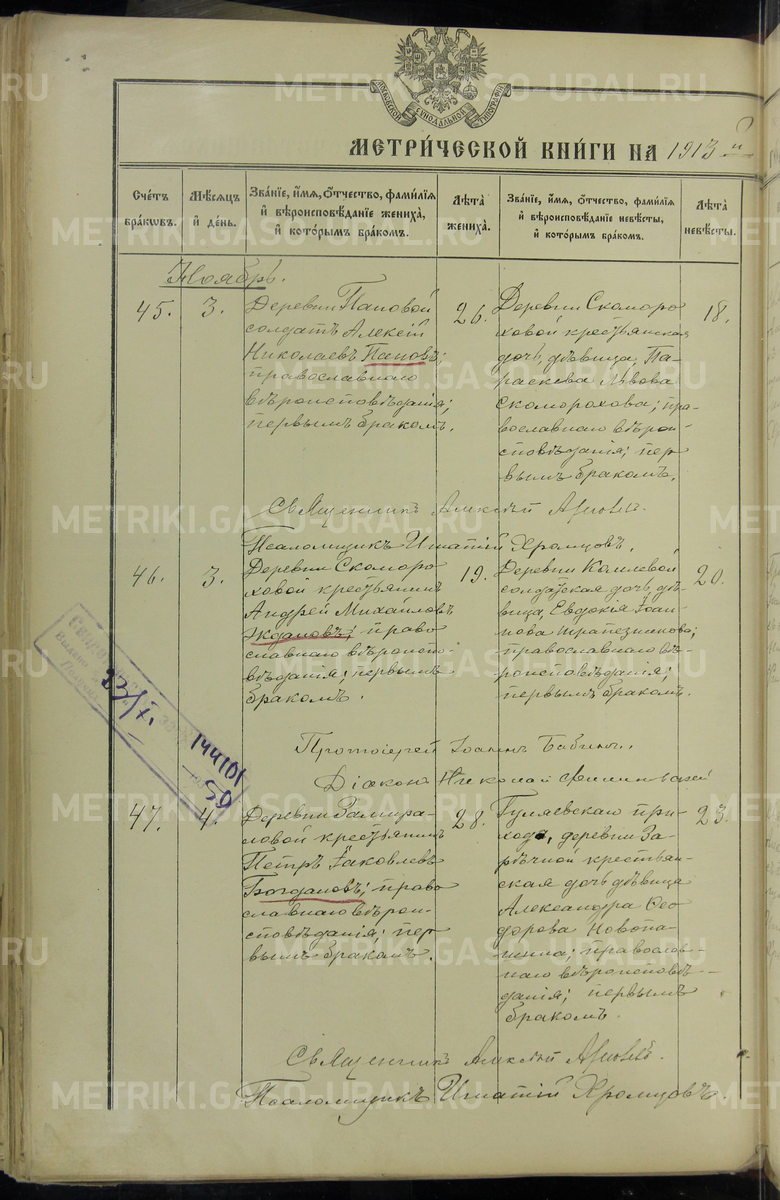 МОСКОВСКОЙ СѴНОДАЛЬНОЙ ТИПОГРАФІИ
МЕТРИ́ЧЕСКОЙ КНИ́ГИ НА 1913
Сче́тъ бра́кѡвъ.
Мѣ́сяцъ и҆ де́нь.
Зва́ніе, и҆́мя, ѻ҆́тчество, фами́лїя и҆ вѣроисповѣ́даніе жениха̀, и҆ кото́рымъ бра́комъ.
Лѣ́та жениха̀.
Зва́ніе, и҆́мя, ѻ҆́тчество, фами́лїя и҆ вѣроисповѣ́даніе невѣ́сты, и҆ кото́рымъ бра́комъ.
Лѣ́та невѣ́сты.
Ноябрь.
45.
3.
Деревни Пановой
солдатъ Алексій
Николаевъ Пановъ;
православнаго
вѣроисповѣданія;
первымъ бракомъ.
26.
Деревни Скоморо
ховой крестьянская
дочь, дѣвица, Па-
раскева Львова
Скоморохова; пра-
вославнаго вѣрои-
сповѣданія; пер
вымъ бракомъ.
18.
Священникъ Алексѣй
Псаломщикъ Игнатій Хромцовъ.
46.
3.
Деревни Скоморо
ховой крестьянинъ
Андрей Михайловъ
Ждановъ; право
славнаго вѣроиспо-
вѣданія; первымъ
бракомъ.
19.
Деревни
солдатская дочь, дѣ-
вица, Евдокія Іоан-
нова Трапезникова;
православнаго вѣ-
роисповѣданія;
первымъ бракомъ.
20.
Протоіерей Іоаннъ Бабинъ.
Діаконъ Николай
23/XI.
144101
59
47.
4.
Деревни Замира-
ловой крестьянинъ
Петръ Іаковлевъ
Богдановъ; право
славнаго вѣрои-
сповѣданія; пер
вымъ бракомъ.
28.
Гуляевскаго при-
хода, деревни За-
рѣчной крестьян-
ская дочь дѣвица
Александра Ѳео
дорова Новопа-
шина; православ-
наго вѣроисповѣ-
данія; первымъ
бракомъ.
23.
Священникъ Алексѣй
Псаломщикъ Игнатій Хромцовъ.
METRIKI.GASO-URAL.RU